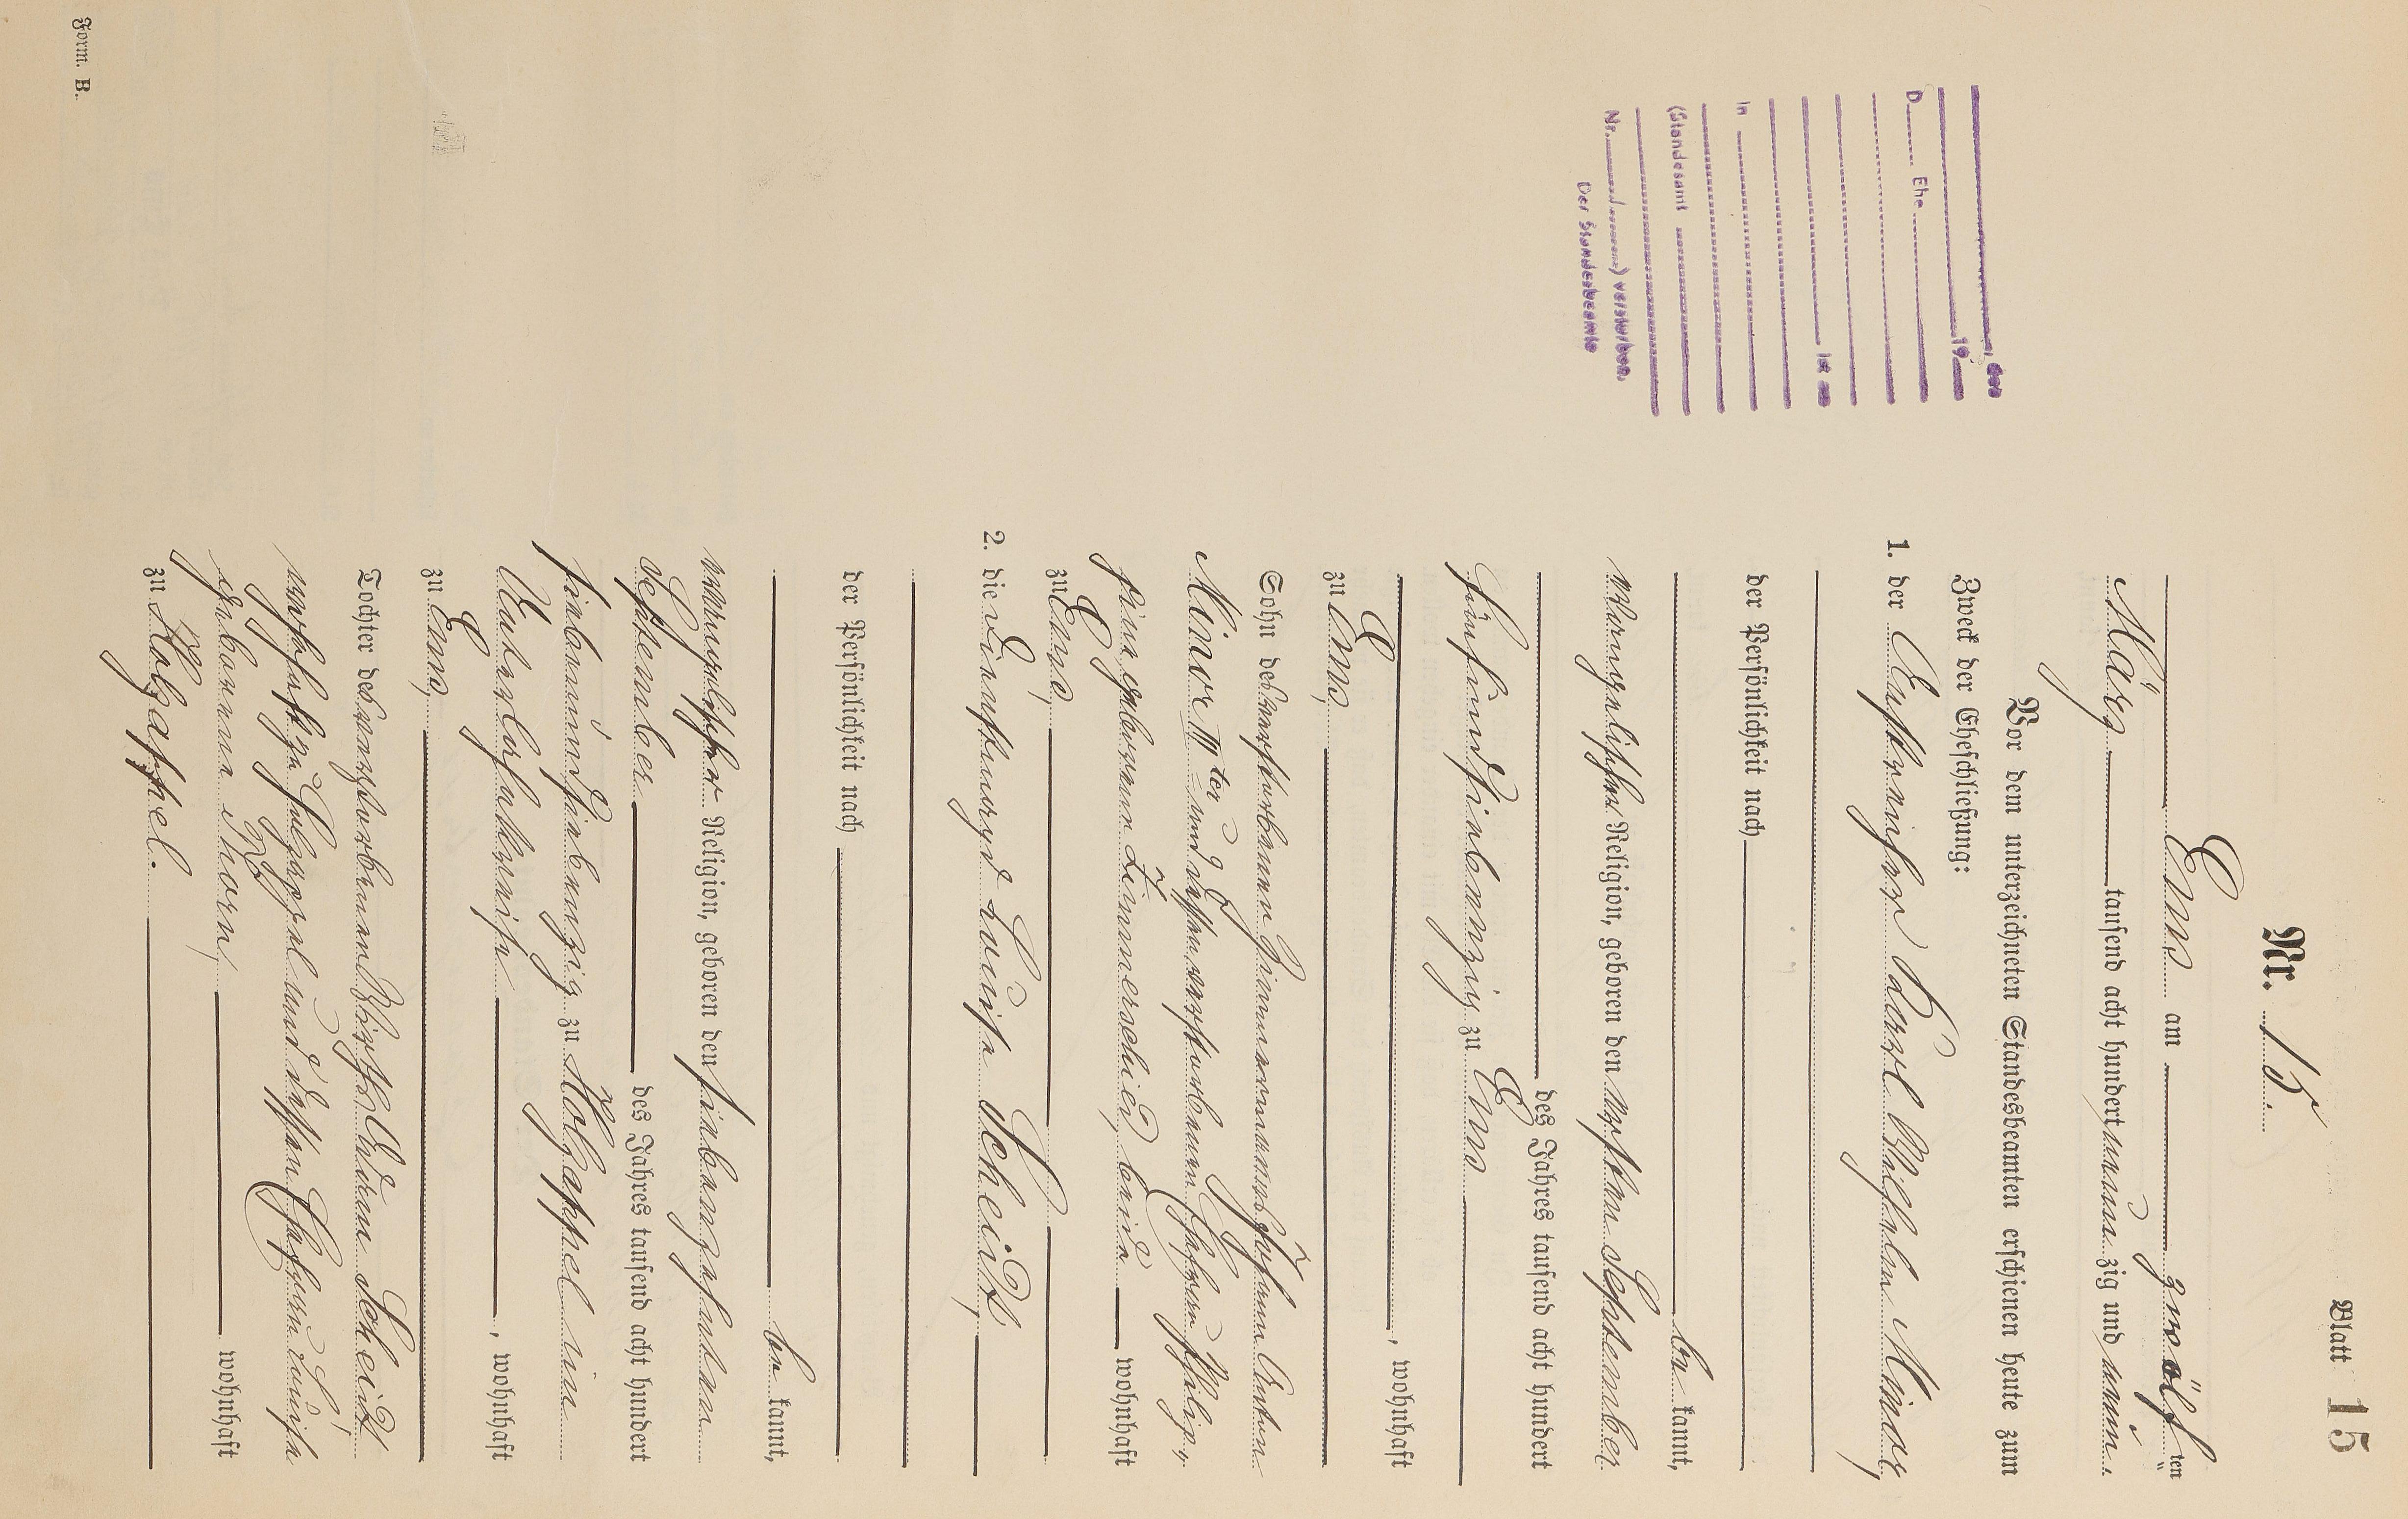 Blatt 15
Nr. 15.
Ems am zwölften
März tausend acht hundert neunzig und neun.
Vor dem unterzeichneten Standesbeamten erschienen heute zum
Zweck der Eheschließung:
1. der Karl Wilhelm Minor,
der Persönlichkeit nach
be kannt,
evangelischer Religion, geboren den ersten September
des Jahres tausend acht hundert
fünfundsiebenzig zu Ems
, wohnhaft
zu Ems,
Sohn des verstorbenen Zimmermanns Johann Anton
Minor IIIter und dessen verstorbenen Ehefrau Philip-
pine geborenen Zimmerschied, beide wohnhaft
zu Ems,
2. die Dienstmagd Louise Scheid,
der Persönlichkeit nach
be kannt,
evangelischer Religion, geboren den siebenzehnten
September des Jahres tausend acht hundert
siebenundsiebenzig zu Holzappel im
Unterlahnkreise, wohnhaft
zu Ems,
Tochter des verstorbenen Adam Scheid
wohnhaft zu und dessen Ehefrau Louise
geborenen Thorn, wohnhaft
zu Holzappel.
, den
19
D Ehe
ist am
in
(Standesamt
Nr. ) verstorben.
Der Standesbeamte
Form. B.